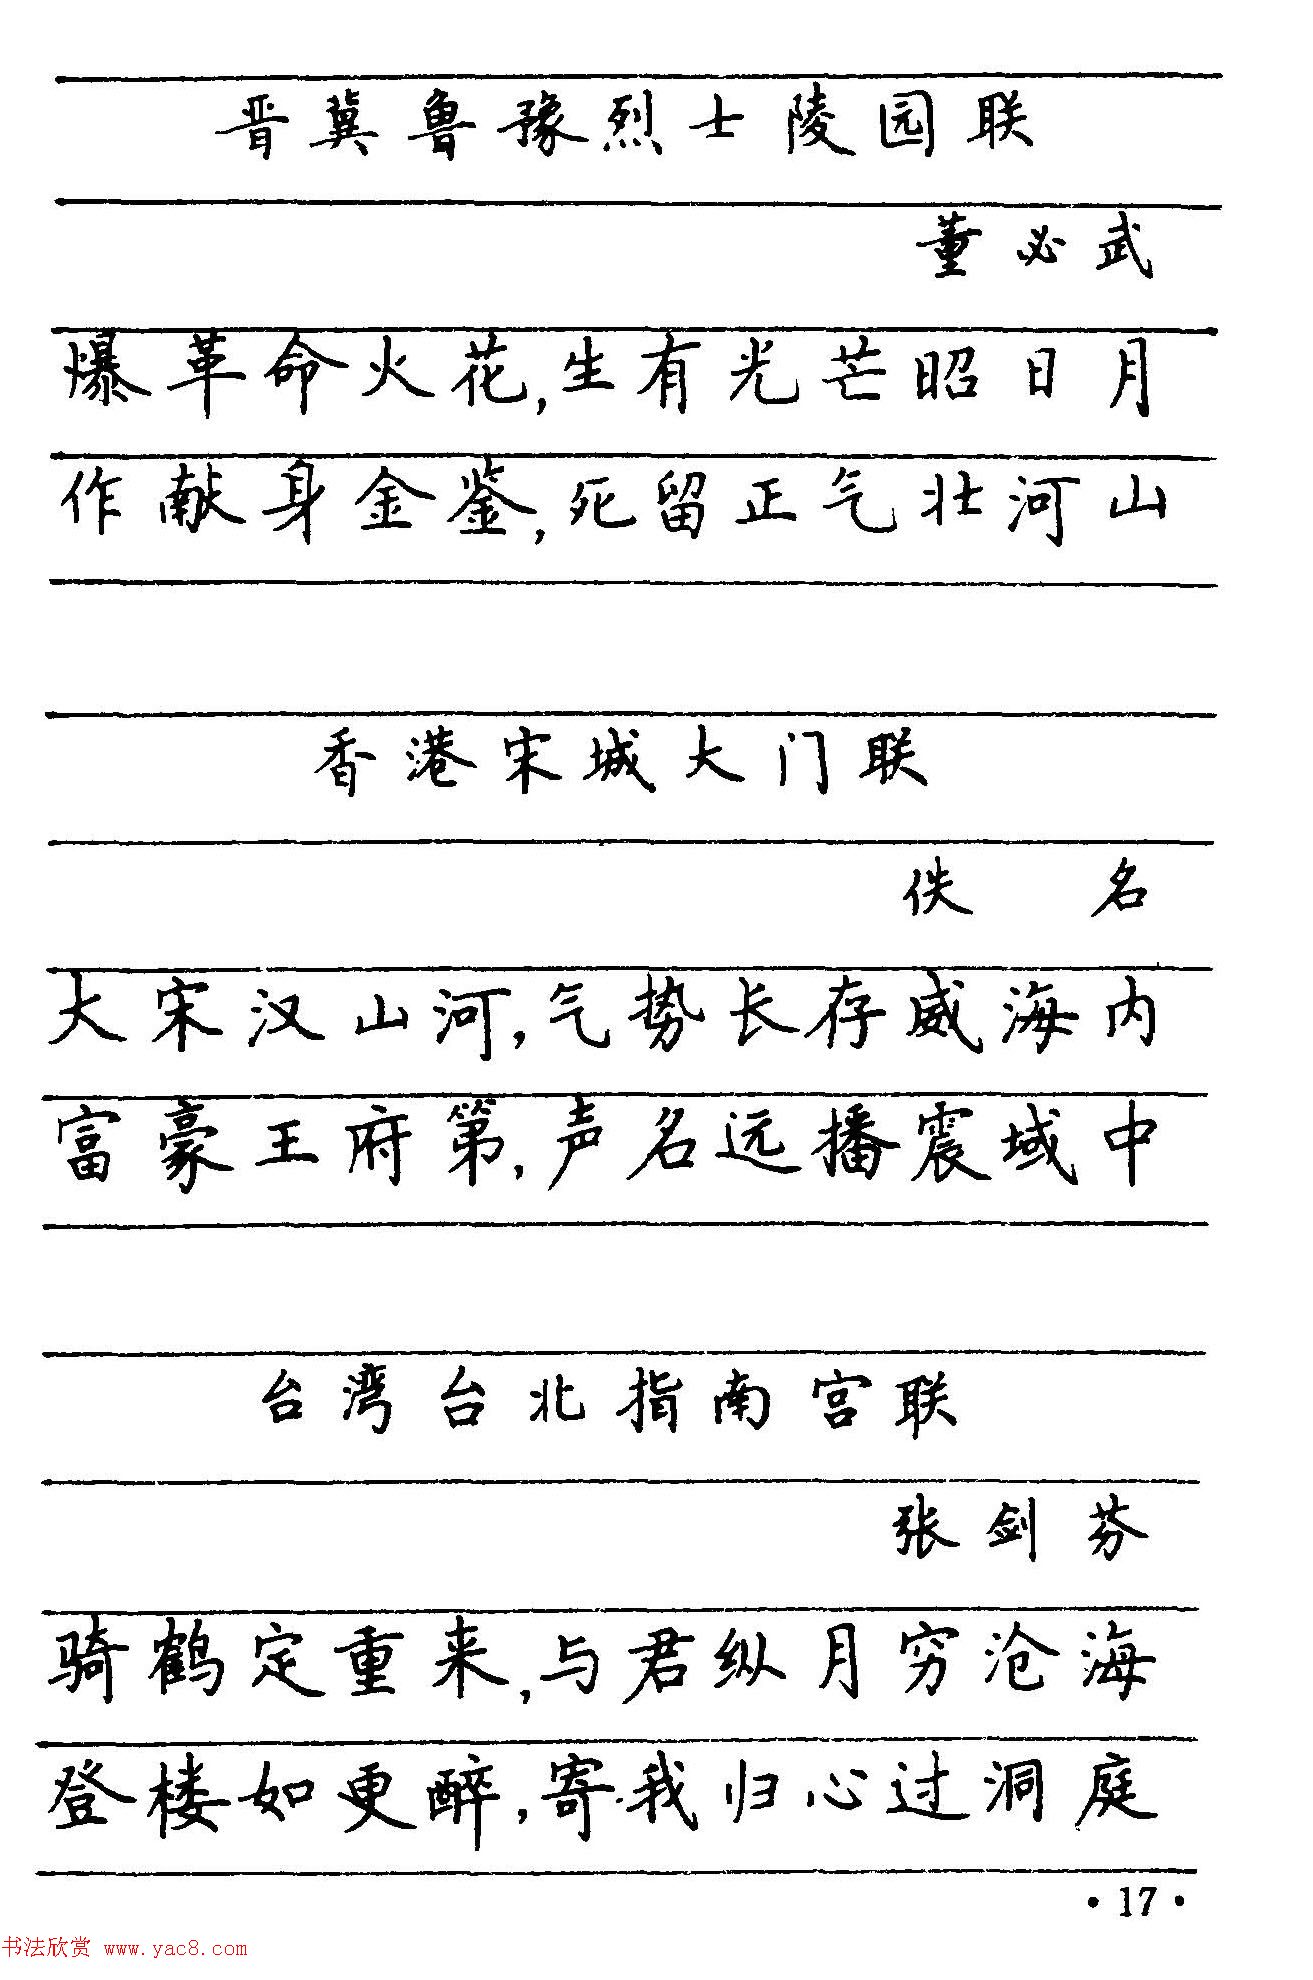 晋冀鲁豫烈士陵园联
董必武
爆革命火花,生有光芒昭日月
作献身金鉴,死留正气壮河山
香港宋城大门联
佚 名
大宋汉山河,气势长存威海内
富豪王府第,声名远播震域中
台湾台北指南宫联
张剑芬
骑鹤定重来,与君纵月穷沧海
登楼如更醉,寄我归心过洞庭
·17·
书法欣赏 www.yac8.com